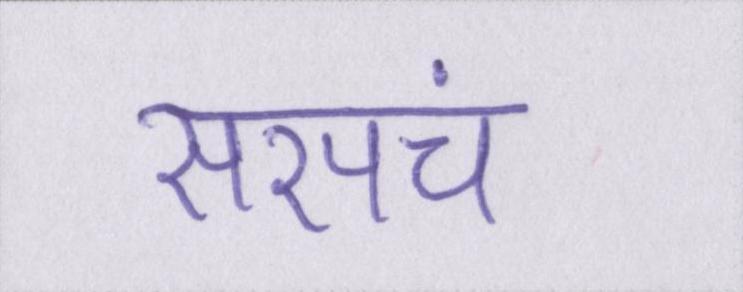 सरपचं